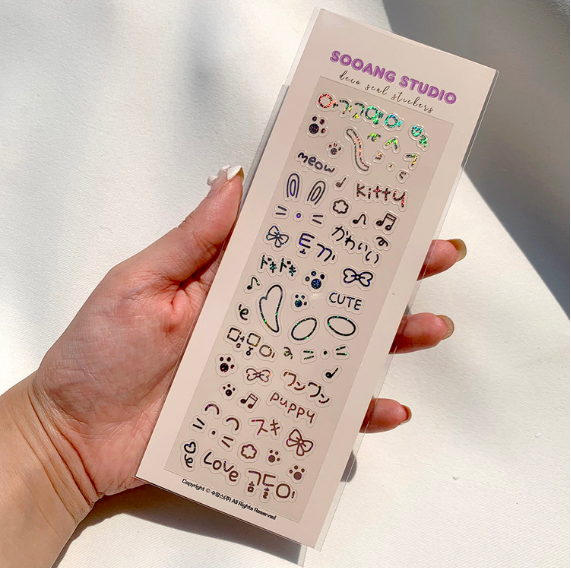 SOOANG STUDIO
deco seal stickers
meow
Kitty
かわいい
토끼
ドキドキ
CUTE
멍멍이
ワンワン
puppy
スキ
Love
곰돌이
Copyright © 수앙스튜디오 All Rights Reserved